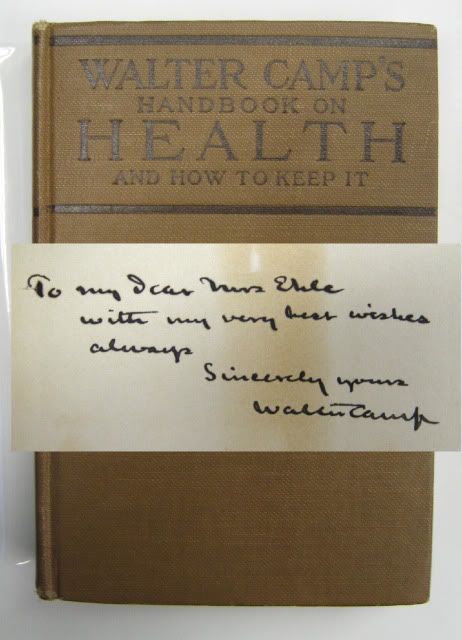 WALTER CAMP'S
HANDBOOK ON
HEALTH
AND HOW TO KEEP IT
To my dear Mrs Ehle
with my very best wishes
always
Sincerely yours
Walter Camp